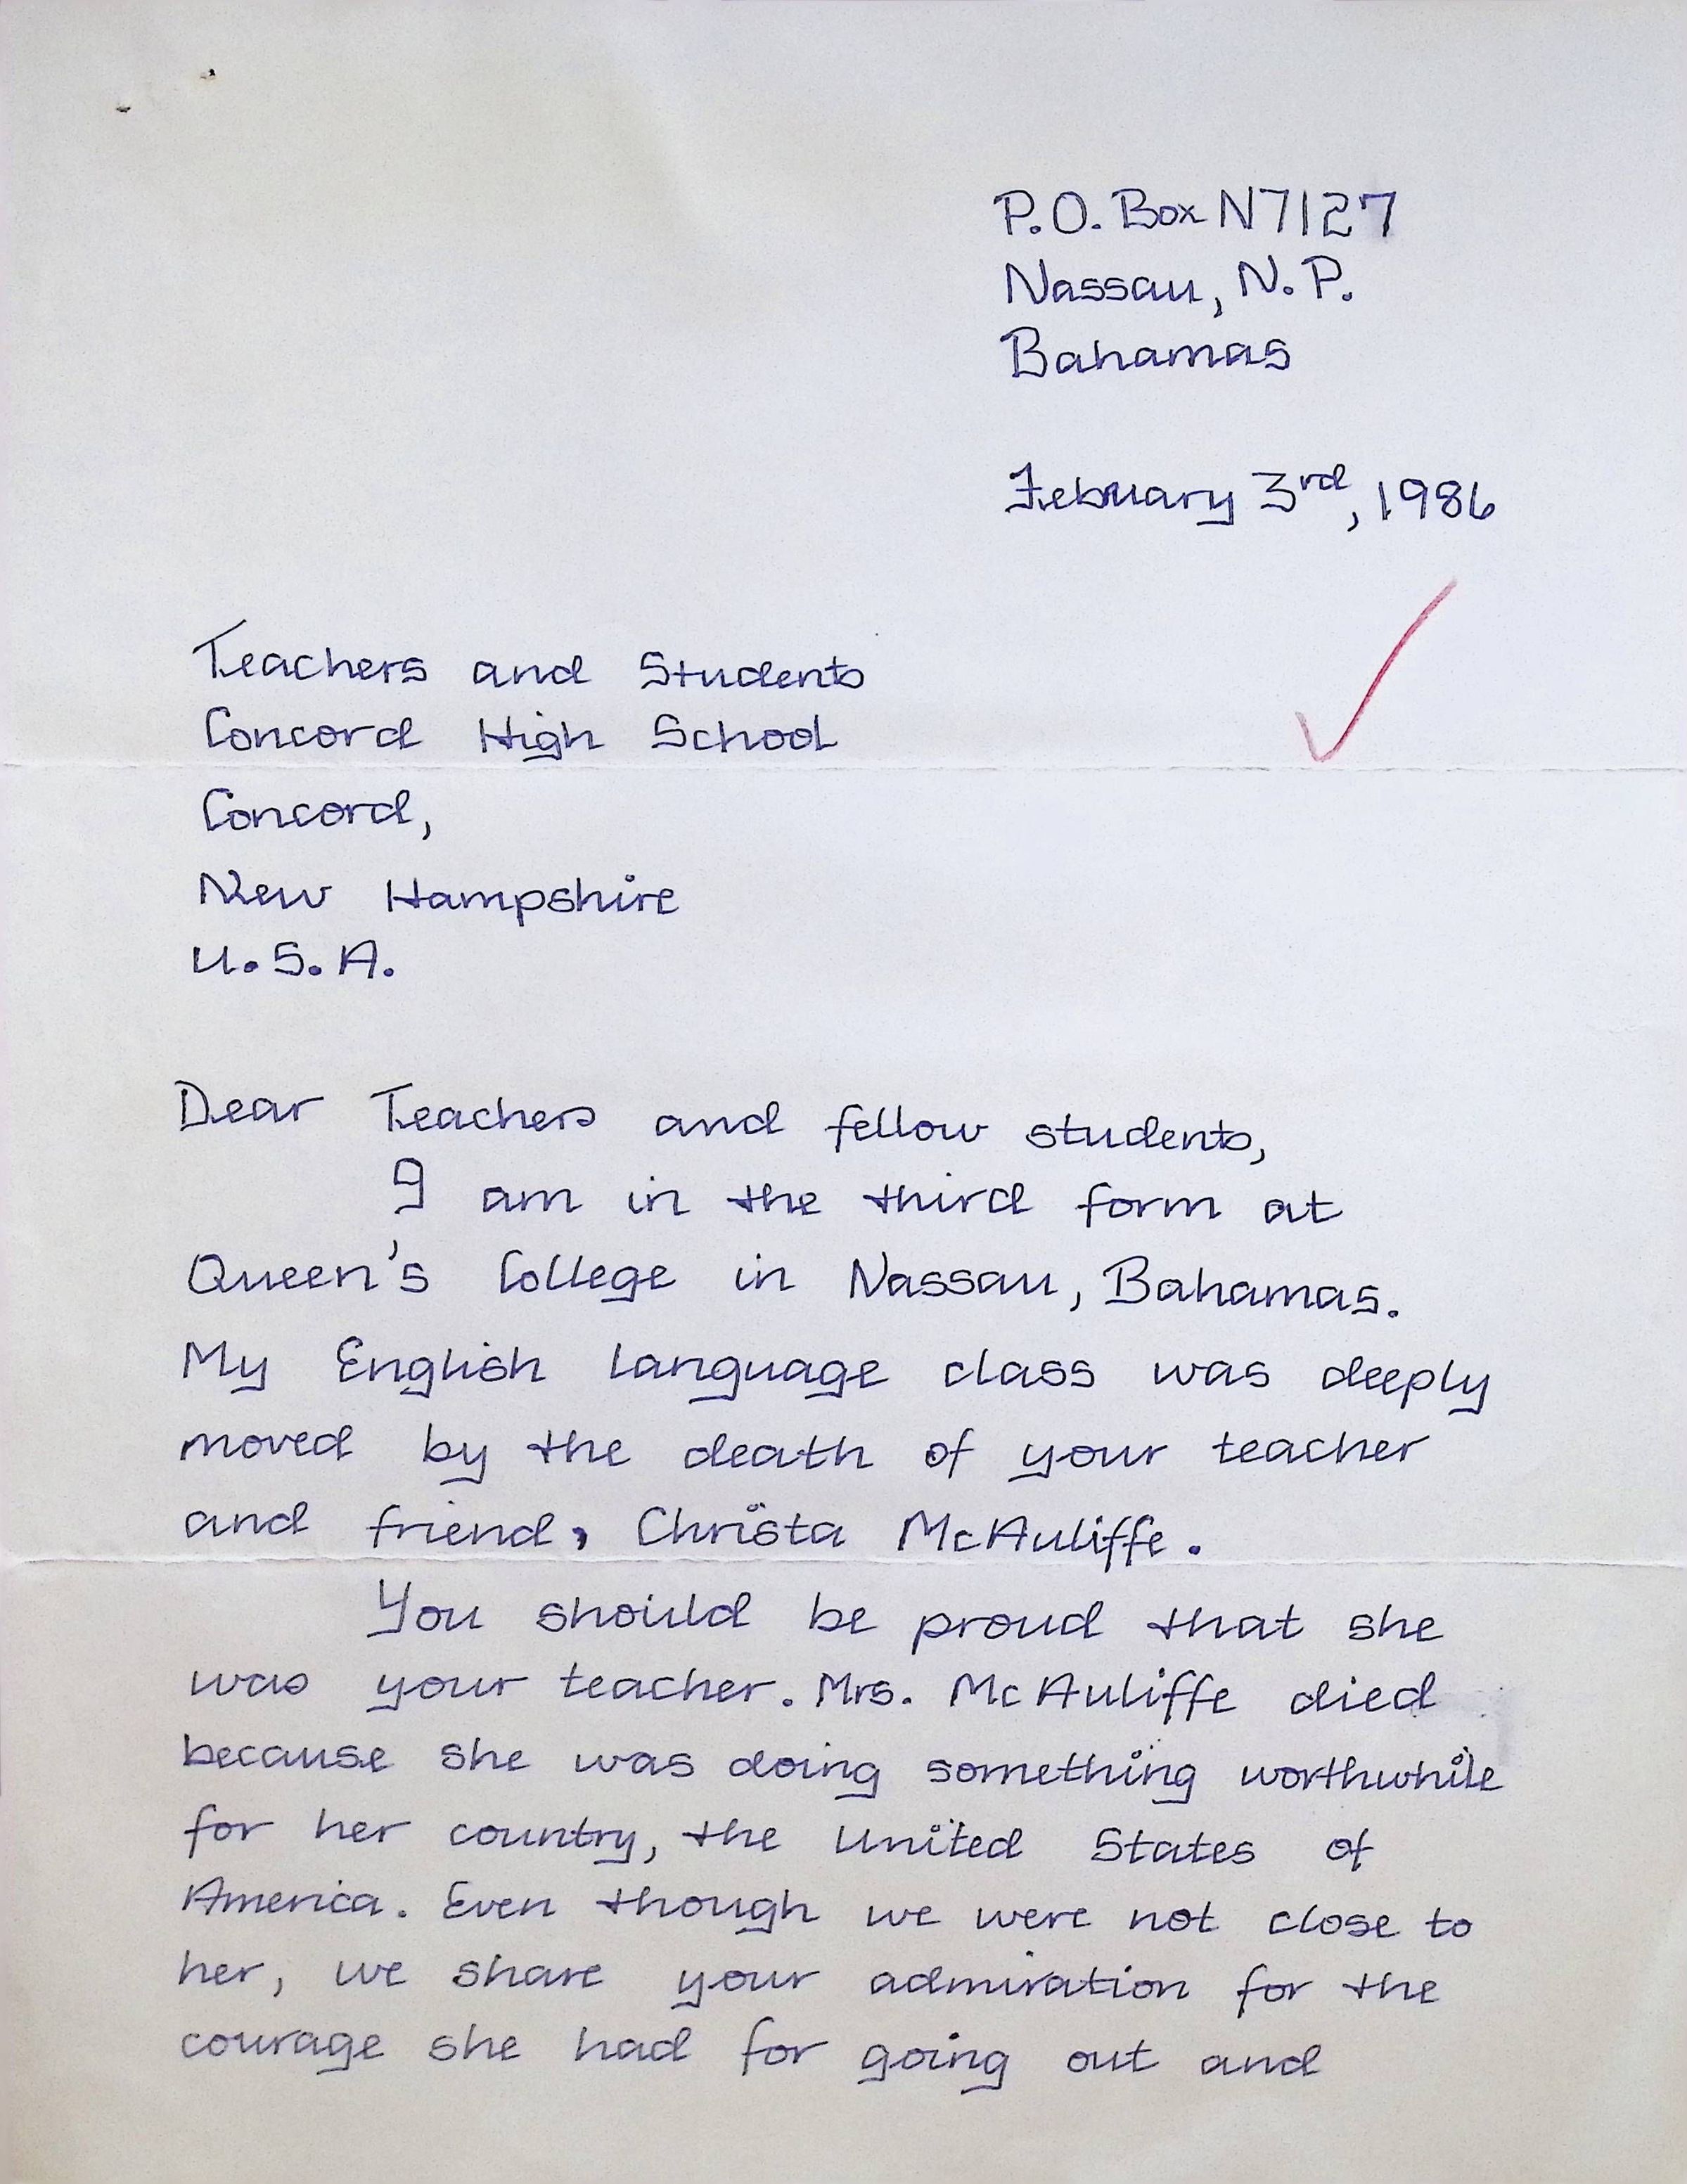 P.O. Box N7127
Nassau, N.P.
Bahamas
February 3rd, 1986
Teachers and Students
Concord High School
Concord,
New Hampshire
U.S.A.
Dear Teachers and fellow students,
I am in the third form at
Queen's College in Nassau, Bahamas.
My English language class was deeply
moved by the death of your teacher
and friend, Christa McAuliffe.
You should be proud that she
was your teacher. Mrs. McAuliffe died
because she was doing something worthwhile
for her country, the United States of
America. Even though we were not close to
her, we share your admiration for the
courage she had for going out and